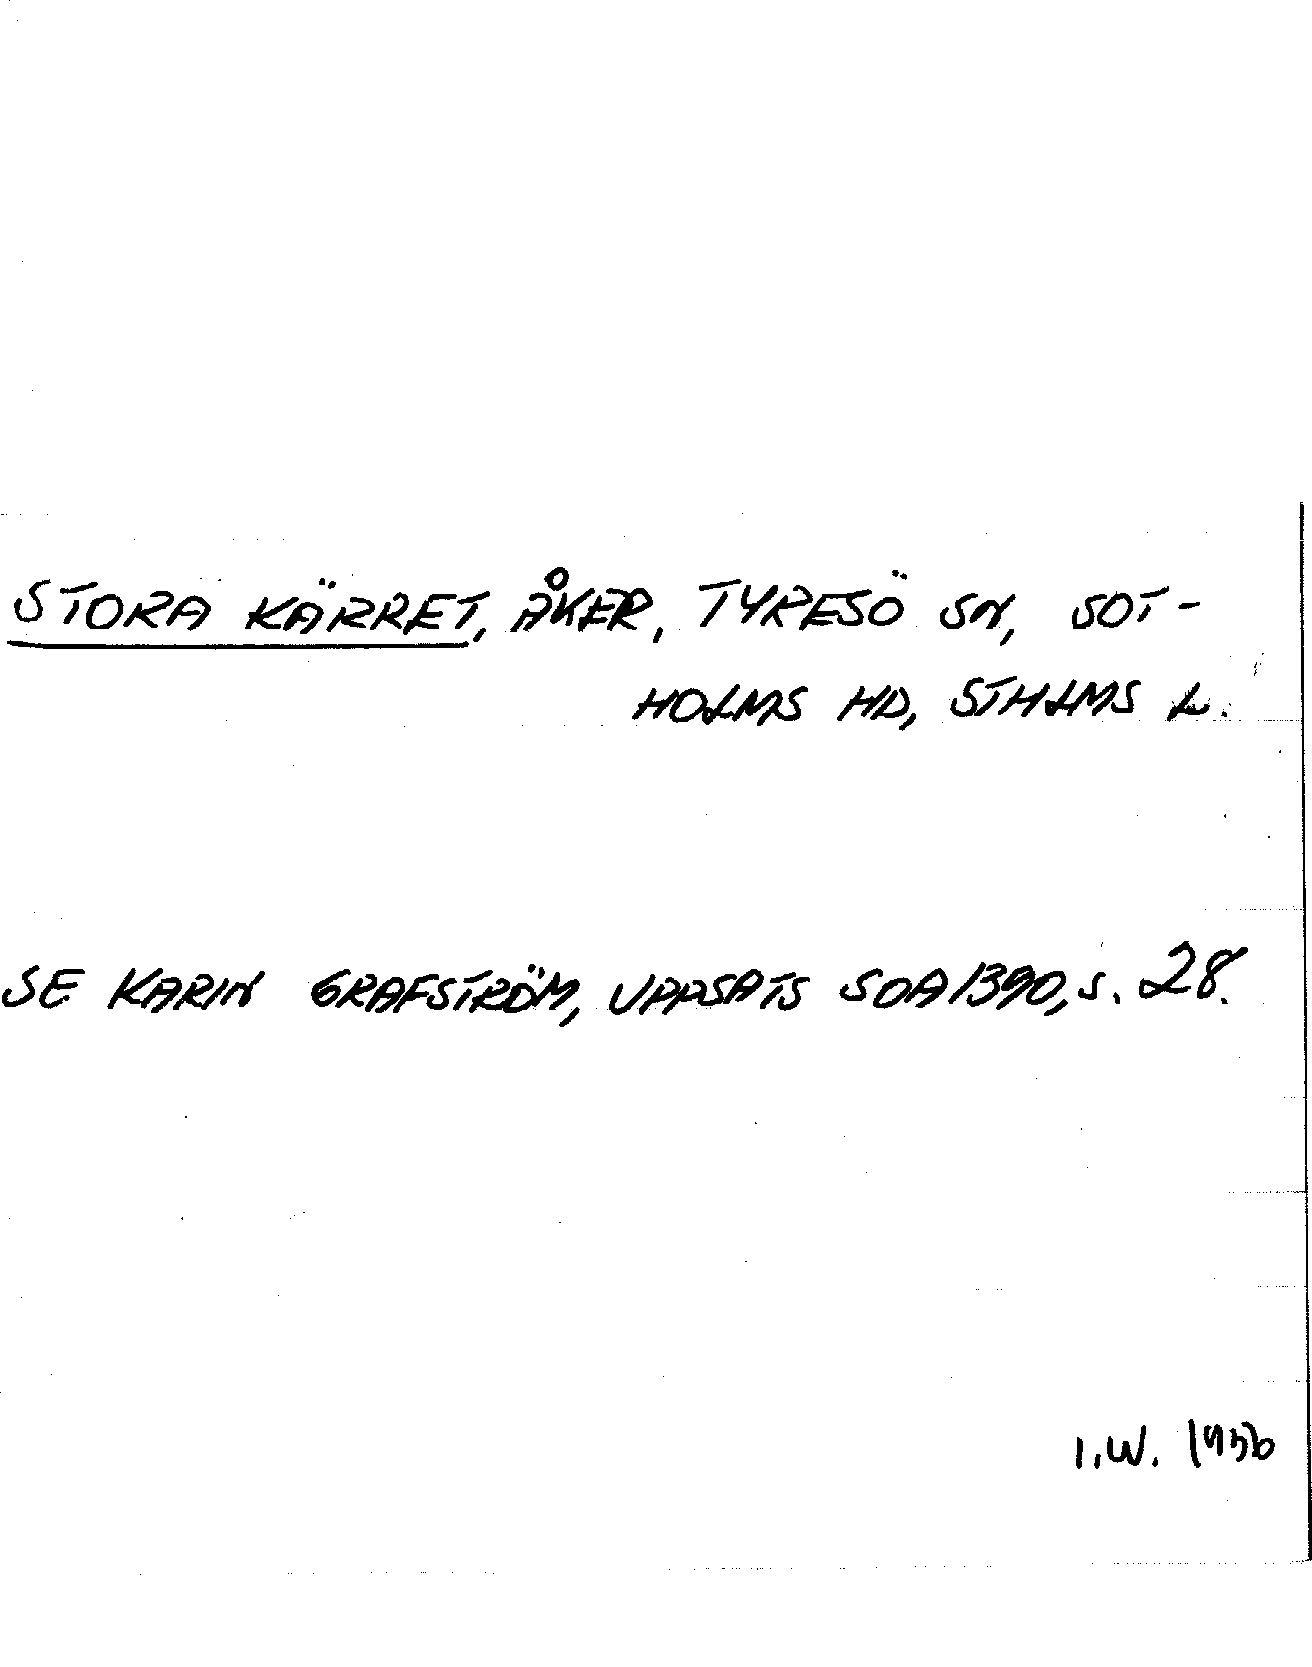 STORA KÄRRET, ÅKER, TYRESÖ SN, SOT-
HOLMS HD, STHLMS L.
SE KARIN GRAFSTRÖM, UPPSATS SOA 1390, s. 28.
I.W.